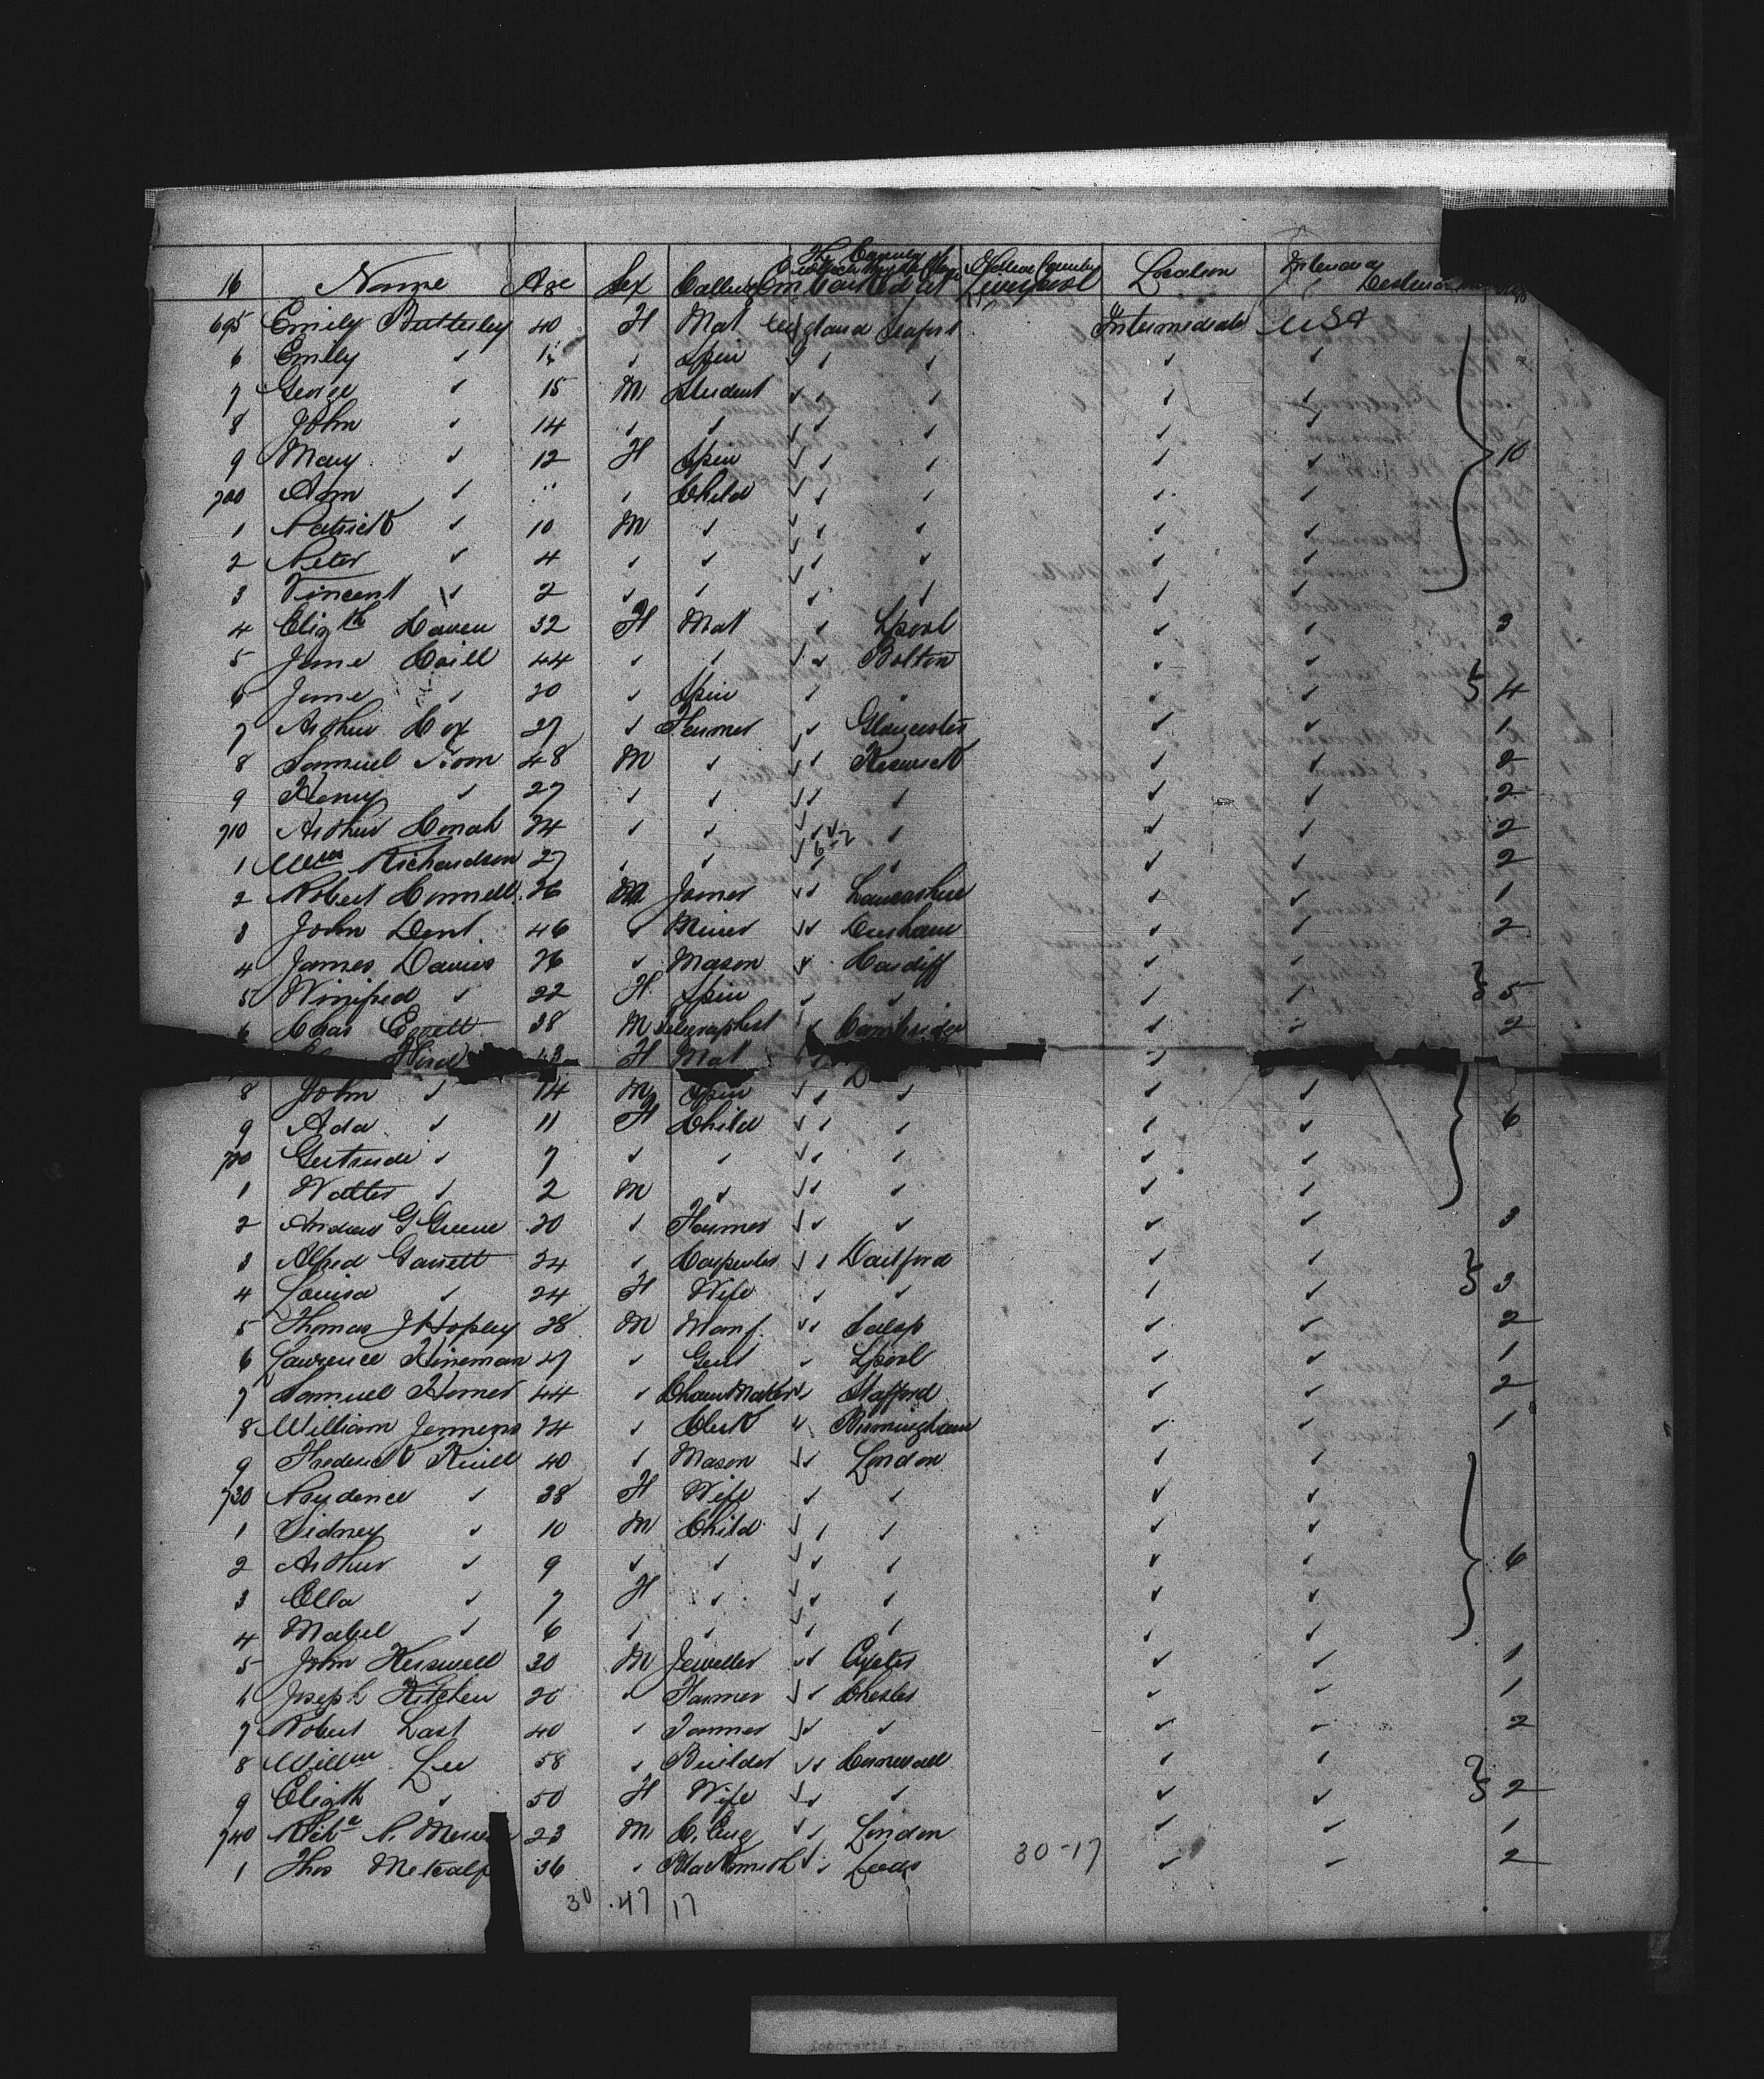 16 Name Age Sex Calling Embarked at Liverpool Location Intended Destination
695 Emily Butterley 40 F Mat England Seaport Intermediate USA
6 Emily ✓ ✓ Spin ✓ ✓ ✓ ✓
7 George ✓ 15 M Student ✓ ✓ ✓ ✓
8 John ✓ 14 ✓ ✓ ✓ ✓ ✓ ✓
9 Mary ✓ 12 F Spin ✓ ✓ ✓ ✓ 10
700 Ann ✓ " ✓ Child ✓ ✓ ✓ ✓
1 Patrick ✓ 10 M ✓ ✓ ✓ ✓ ✓
2 Peter ✓ 4 ✓ ✓ ✓ ✓ ✓ ✓
3 Vincent ✓ 2 ✓ ✓ ✓ ✓ ✓ ✓
4 Elizth 32 F Mat ✓ Lpool ✓ ✓ 3
5 Jane 44 ✓ ✓ ✓ Bolton ✓ ✓
6 Jane ✓ 20 ✓ Spin ✓ ✓ ✓ 4
7 Arthur Cox 27 ✓ Farmer ✓ Gloucester ✓ ✓ 1
8 Samuel 48 M ✓ ✓ Keswick ✓ ✓ 2
9 Henry ✓ 27 ✓ ✓ ✓ ✓ ✓ ✓ 2
710 Arthur 24 ✓ ✓ ✓ ✓ ✓ ✓ 2
1 Wm Richardson 27 ✓ ✓ ✓ ✓ ✓ ✓ 2
2 Robert Connell 26 M Joiner ✓ Lancashire ✓ ✓ 1
3 John Dent 46 ✓ Miner ✓ Durham ✓ ✓ 2
4 James Davies 26 ✓ Mason ✓ Cardiff ✓ ✓
5 Winifred ✓ 22 F Spin ✓ ✓ ✓ ✓ 5
6 Chas 38 M Telegraphist ✓ Cambridge ✓ ✓ 2
43 F Mat ✓
8 John ✓ 14 M Spin ✓ ✓ ✓ ✓
9 Ada ✓ 11 F Child ✓ ✓ ✓ ✓ 6
720 Gertrude ✓ 7 ✓ ✓ ✓ ✓ ✓ ✓
1 Walter ✓ 2 M ✓ ✓ ✓ ✓ ✓
2 Andrew G Greene 20 ✓ Farmer ✓ ✓ ✓ ✓ 3
3 Alfred Garrett 24 ✓ Carpenter ✓ Dartford ✓ ✓
4 Louisa ✓ 24 F Wife ✓ ✓ ✓ ✓ 3
5 Thomas J Hopley 28 M Manf. ✓ Salop ✓ ✓ 2
6 Lawrence Hineman 27 ✓ Gent ✓ Lpool ✓ ✓ 1
7 Samuel Homer 44 ✓ Chain Maker ✓ Stafford ✓ ✓ 2
8 William Jennens 24 ✓ Clerk ✓ Birmingham ✓ ✓ 1
9 Frederick Knill 40 ✓ Mason ✓ London ✓ ✓
730 Prudence ✓ 38 F Wife ✓ ✓ ✓ ✓
1 Sidney ✓ 10 M Child ✓ ✓ ✓ ✓
2 Arthur ✓ 9 ✓ ✓ ✓ ✓ ✓ ✓ 6
3 Ella ✓ 7 F ✓ ✓ ✓ ✓ ✓
4 Mabel ✓ 6 ✓ ✓ ✓ ✓ ✓ ✓
5 John Kerswell 30 M Jeweller ✓ Exeter ✓ ✓ 1
6 Joseph Kitchen 20 ✓ Farmer ✓ Chester ✓ ✓ 1
7 Robert Last 40 ✓ Farmer ✓ ✓ ✓ ✓ 2
8 Willm Lee 58 ✓ Builder ✓ Cornwall ✓ ✓
9 Elizth ✓ 50 F Wife ✓ ✓ ✓ ✓ 2
740 Richd 23 M C. Eng ✓ London ✓ ✓ 1
1 Thos Metcalf 36 ✓ Blacksmith ✓ Leeds 30-17 ✓ ✓ 2
30 .47 17